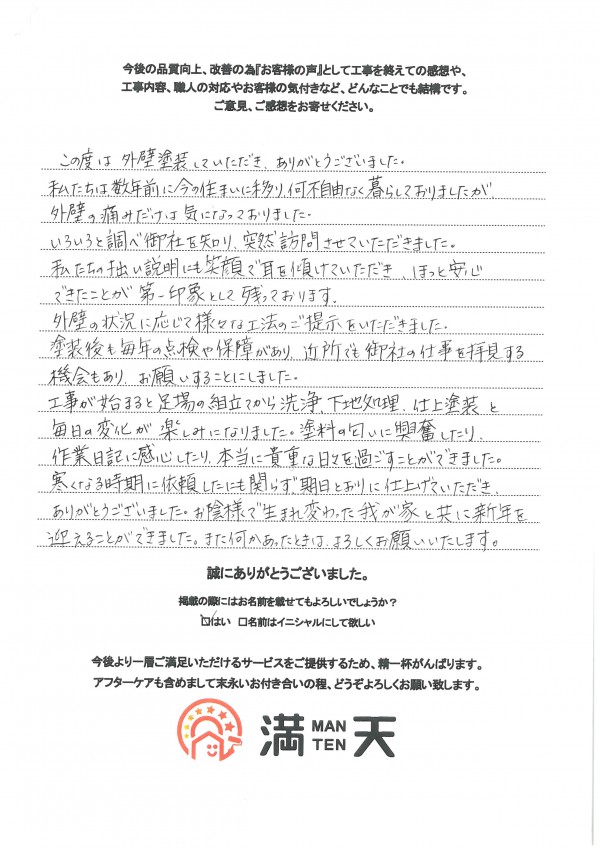 今後の品質向上、改善の為『お客様の声』として工事を終えての感想や、
工事内容、職人の対応やお客様の気付きなど、どんなことでも結構です。
ご意見、ご感想をお寄せください。
この度は外壁塗装していただき、ありがとうございました。
私たちは数年前に今の住まいに移り、何不自由なく暮らしておりましたが、
外壁の痛みだけは気になっておりました。
いろいろと調べ御社を知り、突然訪問させていただきました。
私たちの拙い説明にも笑顔で耳を傾けていただき、ほっと安心
できたことが第一印象として残っております。
外壁の状況に応じて様々な工法のご提示をいただきました。
塗装後も毎年の点検や保障があり、近所でも御社の仕事を拝見する
機会もあり、お願いすることにしました。
工事が始まると足場の組立てから洗浄、下地処理、仕上塗装と
毎日の変化が楽しみになりました。塗料の匂いに興奮したり、
作業日記に感心したり、本当に貴重な日々を過ごすことができました。
寒くなる時期に依頼したにも関らず期日とおりに仕上げていただき、
ありがとうございました。お陰様で生まれ変わった我が家と共に新年を
迎えることができました。また何かあったときは、よろしくお願いいたします。
誠にありがとうございました。
掲載の際にはお名前を載せてもよろしいでしょうか？
☑はい ☐名前はイニシャルにして欲しい
今後より一層ご満足いただけるサービスをご提供するため、精一杯がんばります。
アフターケアも含めまして末永いお付き合いの程、どうぞよろしくお願い致します。
満 MAN TEN 天